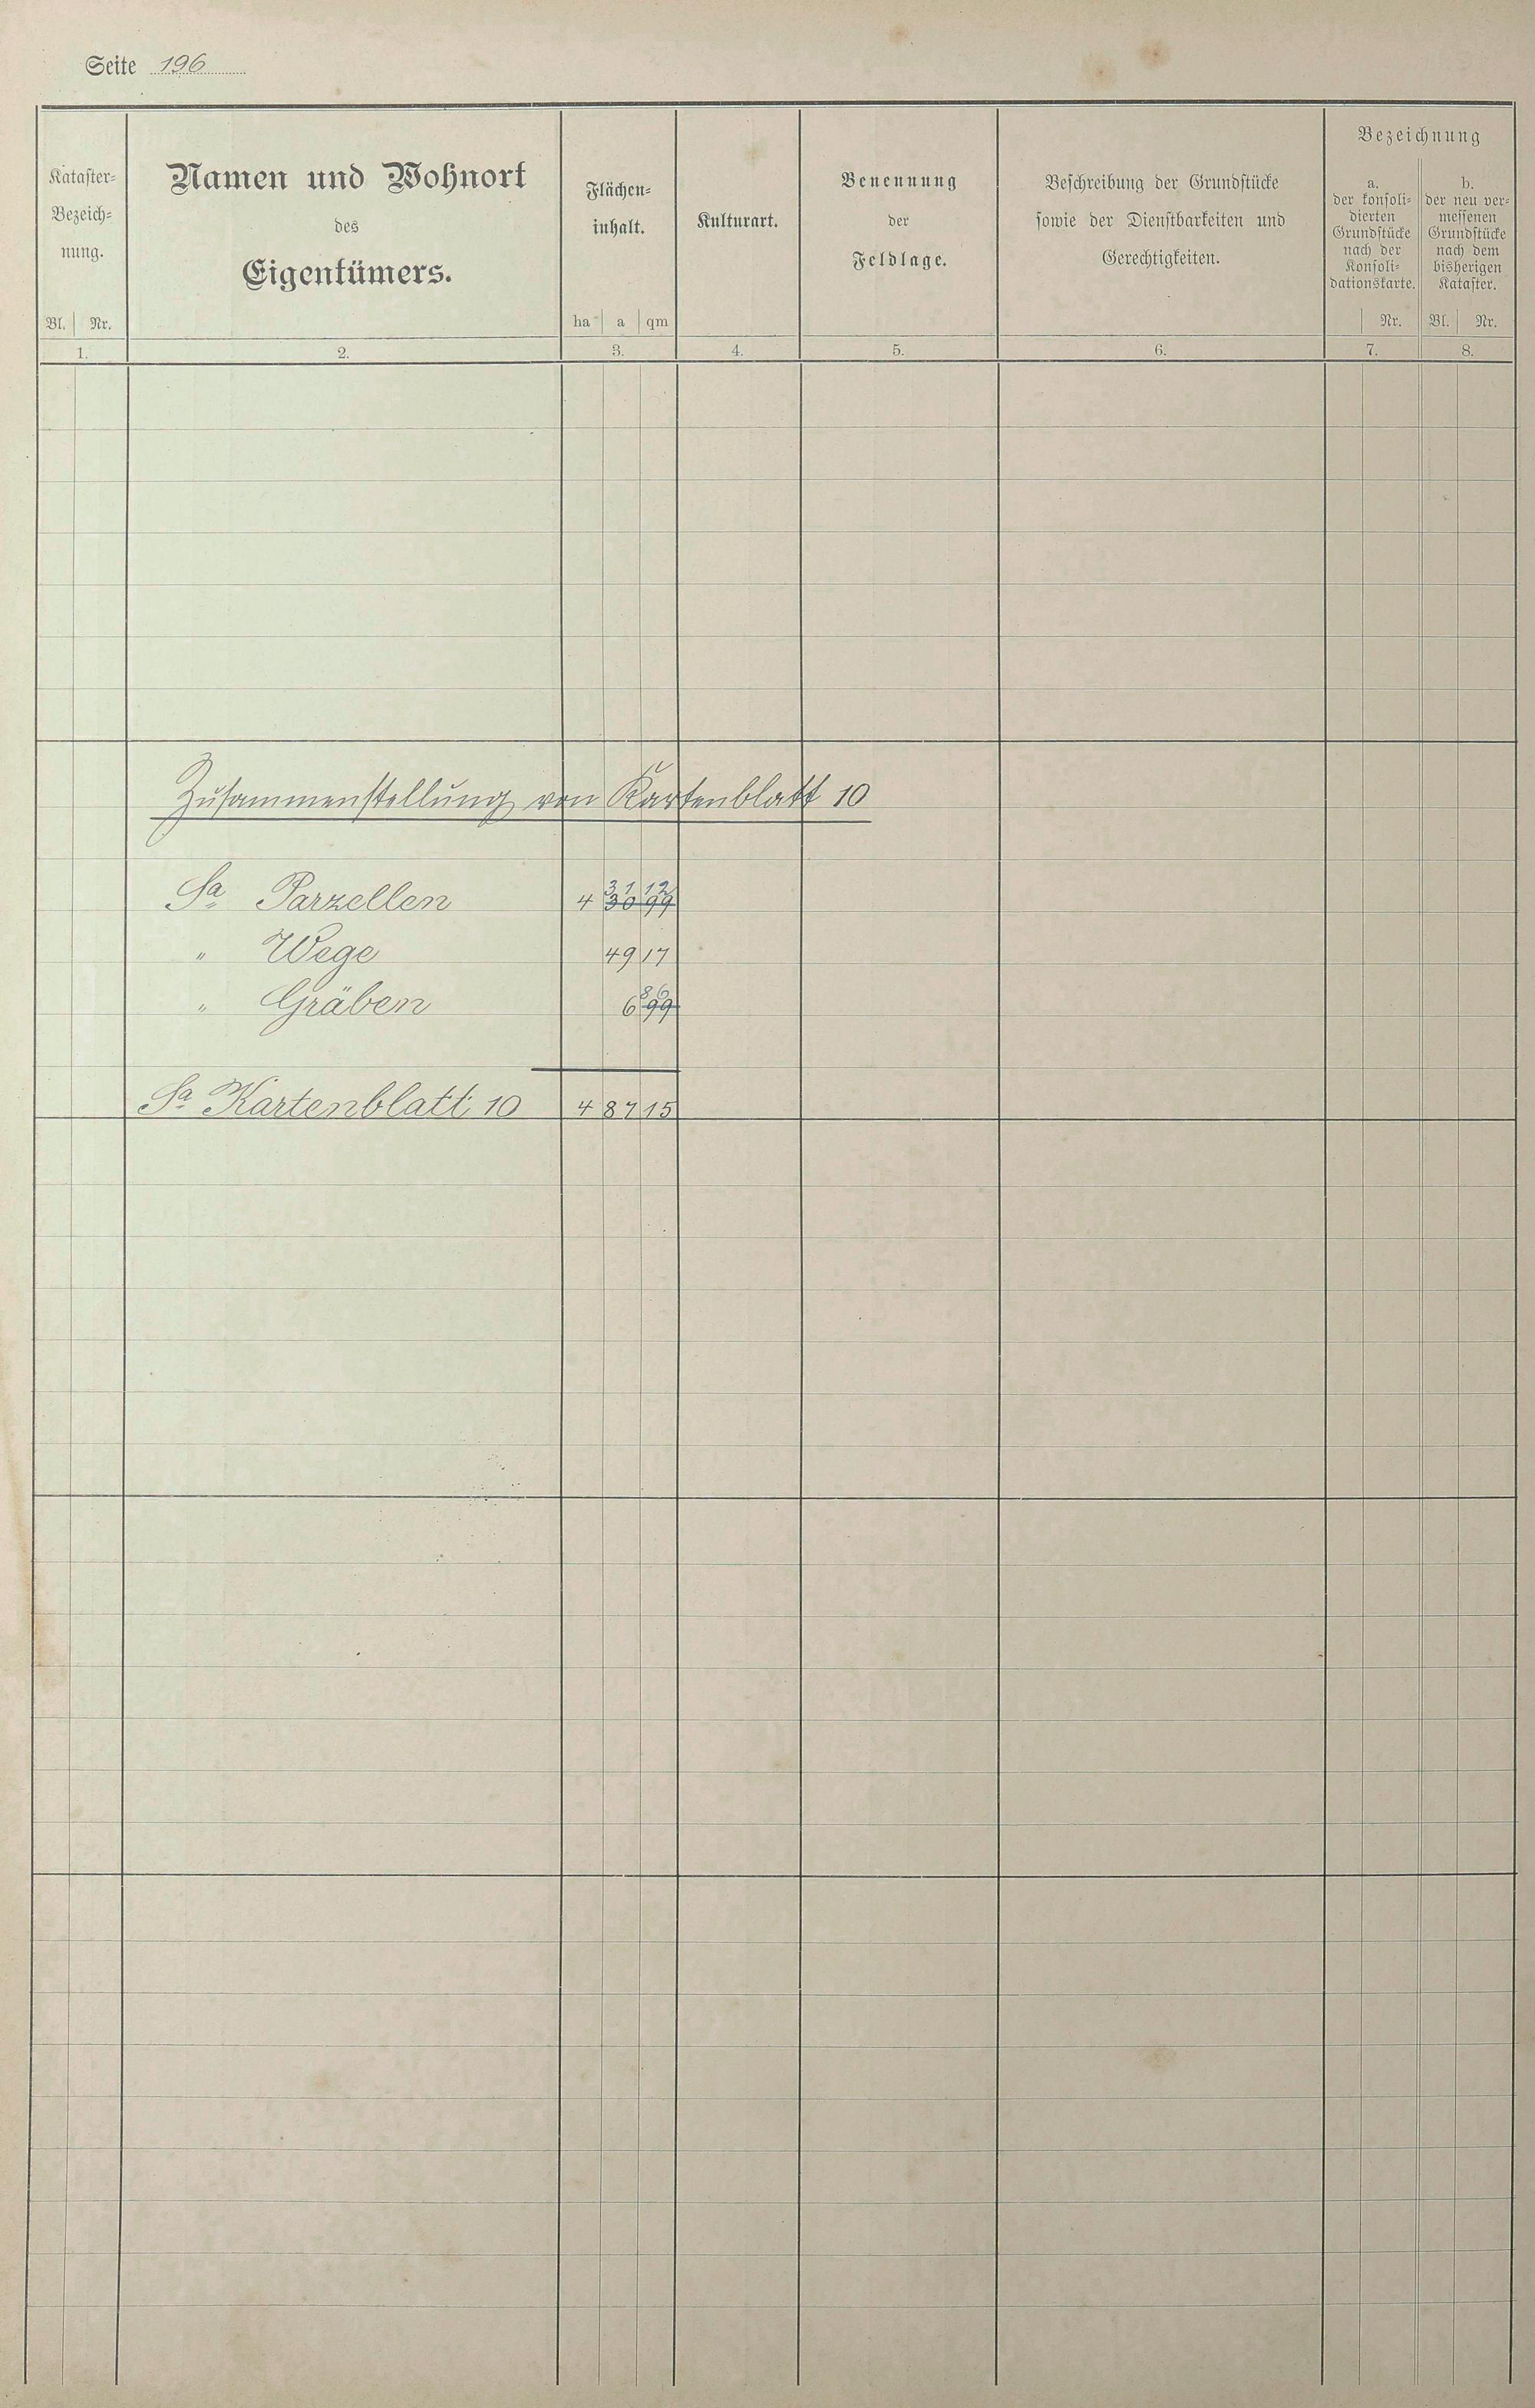 Seite 196
Kataster=
Bezeich=
nung.
Bl. Nr.
1.
Namen und Wohnort
des
Eigentümers.
2.
Flächen=
inhalt.
ha a qm
3.
Kulturart.
4.
Benennung
der
Feldlage.
5.
Beschreibung der Grundstücke
sowie der Dienstbarkeiten und
Gerechtigkeiten.
6.
Bezeichnung
a.
der konsoli=
dierten
Grundstücke
nach der
Konsoli=
dationskarte.
Nr.
7.
b.
der neu ver=
messenen
Grundstücke
nach dem
bisherigen
Kataster.
Bl. Nr.
8.
Zusammenstellung von Kartenblatt 10
31 12
Sa Parzellen 4 30 99
" Wege 49 17
86
" Gräben 6 99
Sa. Kartenblatt 10 4 87 15